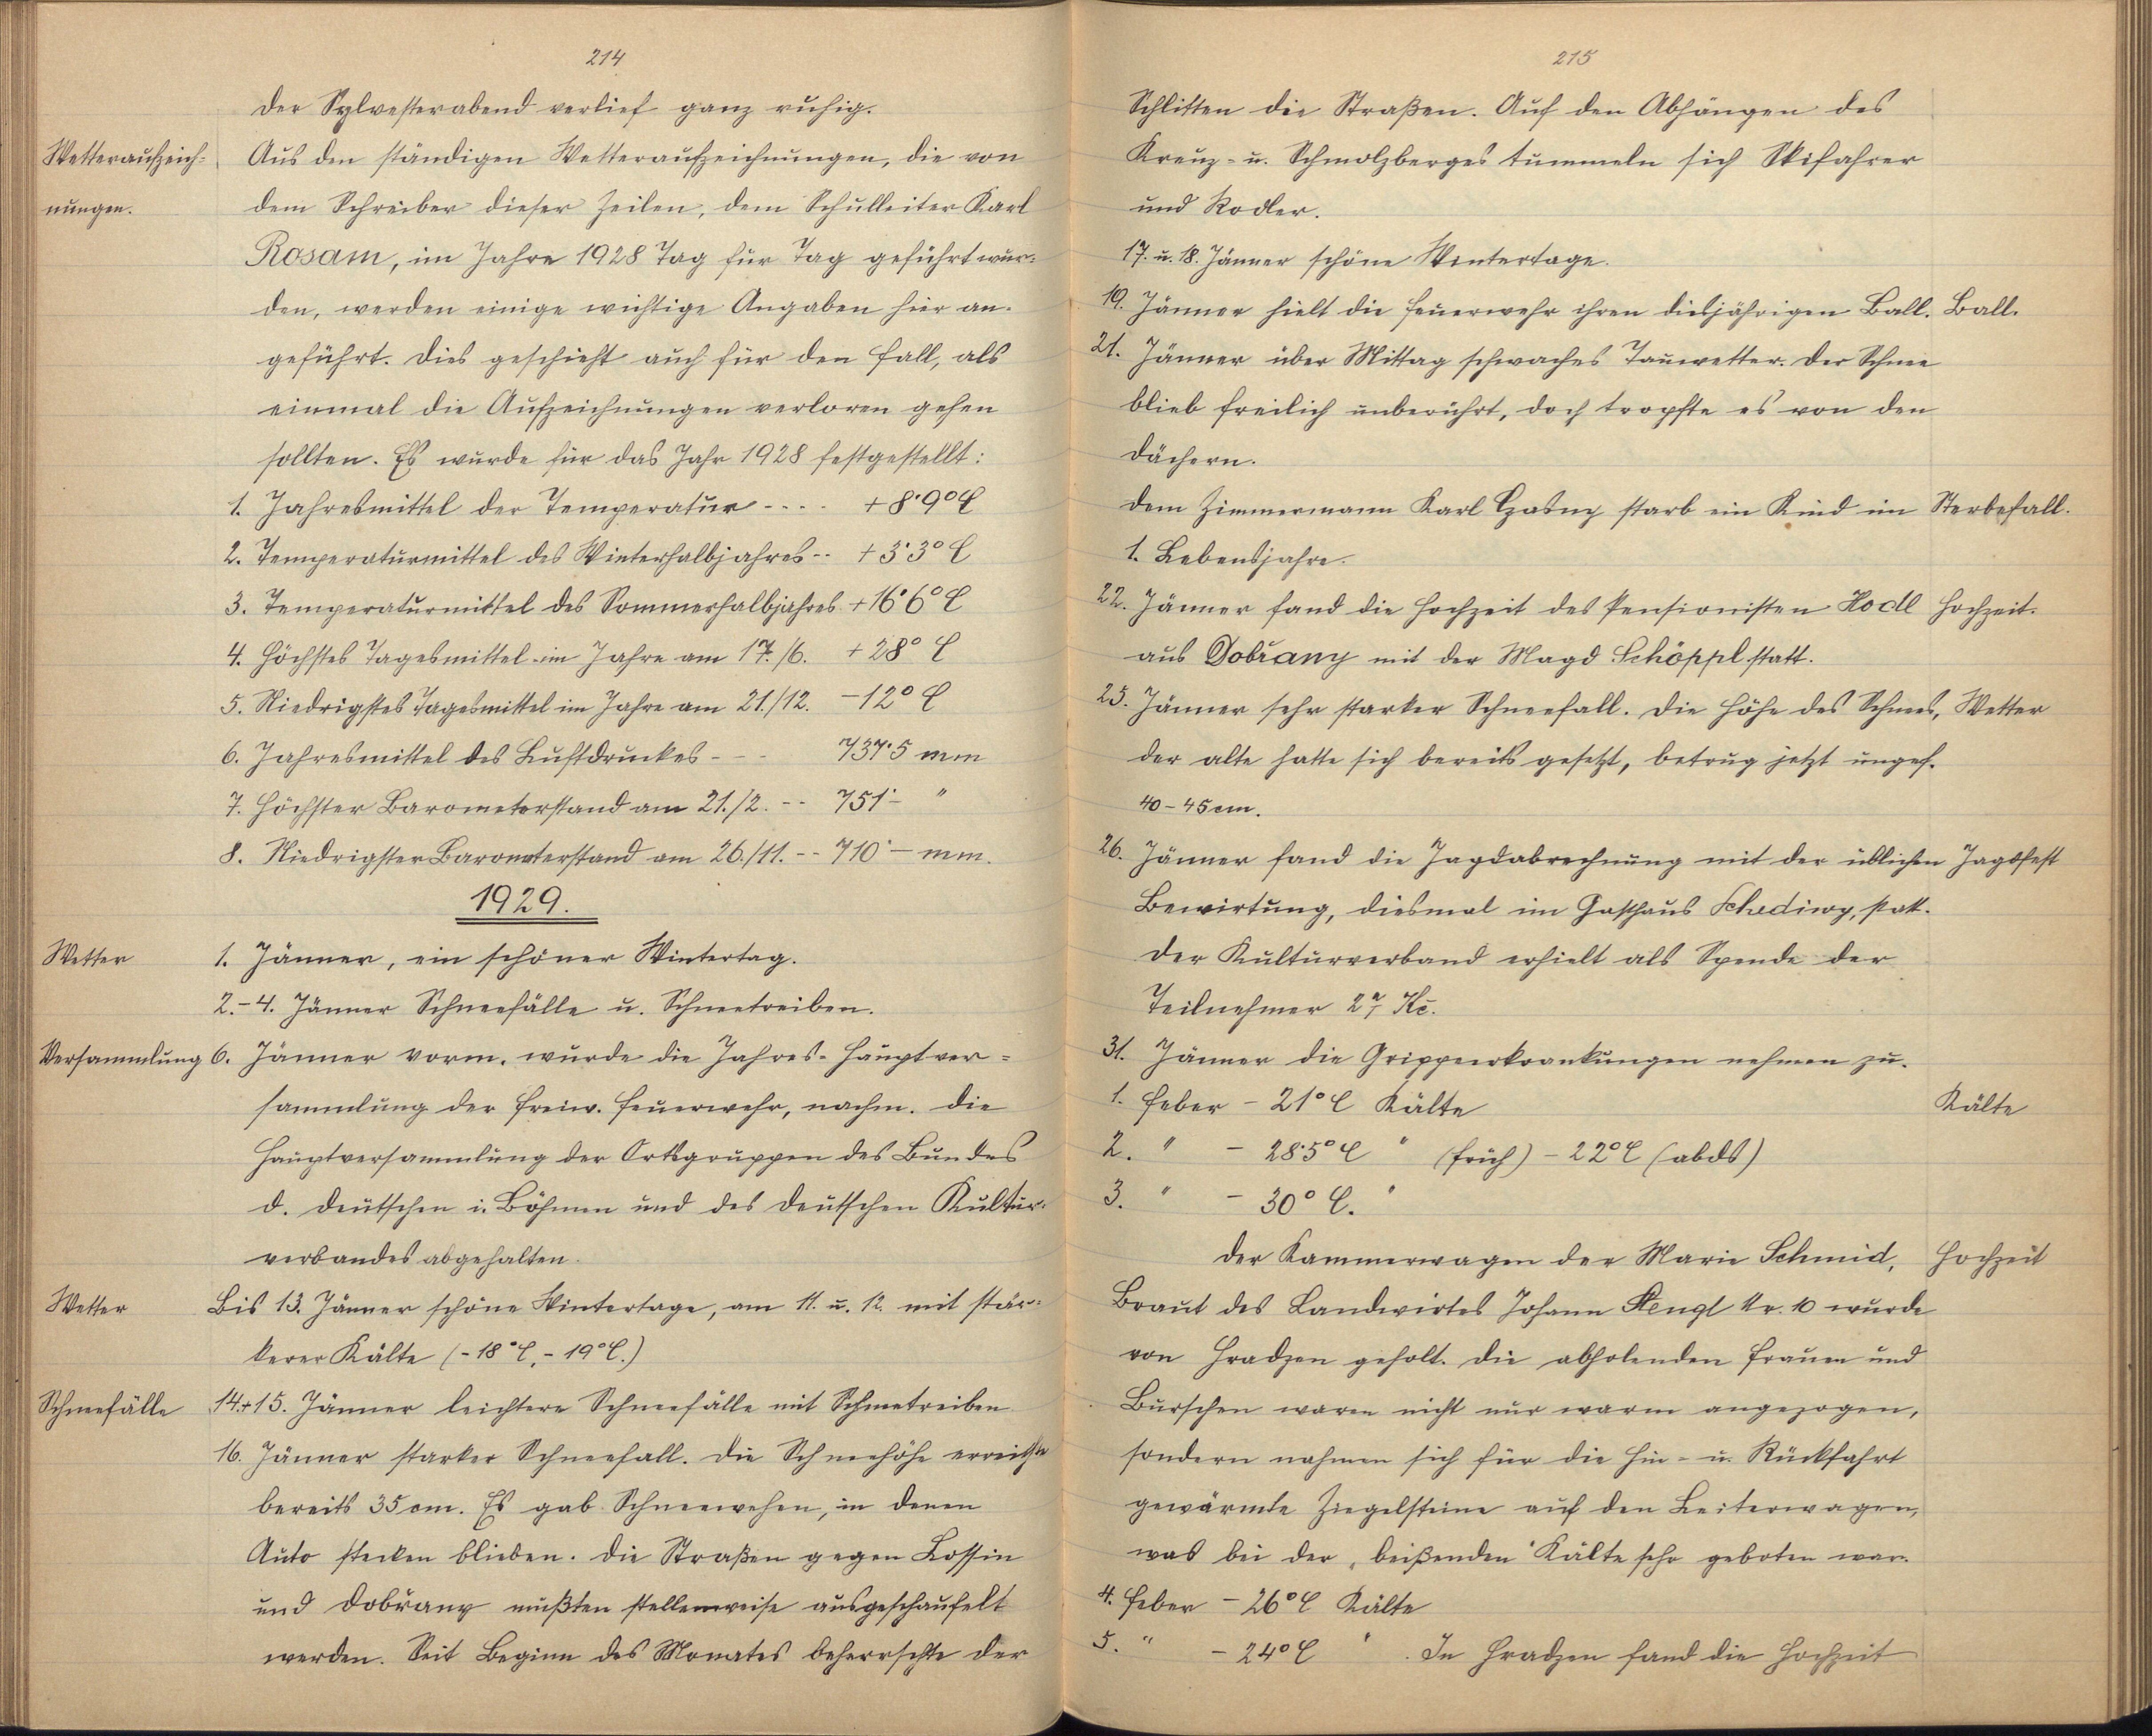 214
Der Sylvesterabend verlief ganz ruhig.
Wetteraufzeich- Aus den ständigen Wetteraufzeichnungen, die von
nungen. dem Schreiber dieser Zeilen, dem Schulleiter Karl
Rosam, im Jahre 1928 Tag für Tag geführt wur-
den, werden einige wichtige Angaben hier an-
geführt. Dies geschieht auch für den Fall, als
einmal die Aufzeichnungen verloren gehen
sollten. Es wurde für das Jahr 1928 festgestellt:
1. Jahresmittel der Temperatur - - - - + 8·9° C
2. Temperaturmittel des Winterhalbjahres - - + 3·3° C
3. Temperaturmittel des Sommerhalbjahres + 16·6° C
4. Höchstes Tagesmittel im Jahre am 17./6. + 28° C
5. Niedrigstes Tagesmittel im Jahre am 21./12. - 12° C
6. Jahresmittel des Luftdruckes - - - 737·5 mm
7. Höchster Barometerstand am 21./2. - - 751·- "
8. Niedrigster Barometerstand am 26./11. - - 710·- mm.
1929.
Wetter 1. Jänner, ein schöner Wintertag.
2.-4. Jänner Schneefälle u. Schneetreiben.
Versammlung 6. Jänner vorm. wurde die Jahres-Hauptver-
sammlung der freiw. Feuerwehr, nachm. die
Hauptversammlung der Ortsgruppen des Bundes
d. Deutschen i. Böhmen und des Deutschen Kultur-
verbandes abgehalten.
Wetter Bis 13. Jänner schöne Wintertage, am 11. u. 12. mit stär-
kerer Kälte (- 18° C, - 19° C.)
Schneefälle 14.+15. Jänner leichtere Schneefälle mit Schneetreiben
16. Jänner starker Schneefall. Die Schneehöhe erreichte
bereits 35 cm. Es gab Schneewehen, in denen
Auto stecken blieben. Die Straßen gegen Lossin
und Dobřany mußten stellenweise ausgeschaufelt
werden. Seit Beginn des Monates beherrschte der
215
Schlitten die Straßen. Auf den Abhängen des
Kreuz- u. Schmolzberges tummeln sich Skifahrer
und Rodler.
17. u. 18. Jänner schöne Wintertage.
19. Jänner hielt die Feuerwehr ihren diesjährigen Ball. Ball.
21. Jänner über Mittag schwaches Tauwetter. Der Schnee
blieb freilich unberührt, doch tropfte es von den
Dächern.
Dem Zimmermann Karl Czasny starb ein Kind im Sterbefall.
1. Lebensjahre.
22. Jänner fand die Hochzeit des Pensionisten Hodl Hochzeit.
aus Dobřany mit der Magd Schöppl statt.
25. Jänner sehr starker Schneefall. Die Höhe des Schnees, Wetter
der alte hatte sich bereits gesetzt, betrug jetzt ungef.
40 - 45 cm.
26. Jänner fand die Jagdabrechnung mit der üblichen Jagdfest
Bewirtung, diesmal im Gasthaus Schediwy, statt.
Der Kulturverband erhielt als Spende der
Teilnehmer Kč.
31. Jänner die Grippeerkrankungen nehmen zu.
1. Feber - 21° C Kälte Kälte
2. " - 28·5° C " (früh) - 22° C (abds)
3. " - 30° C. "
Der Kammerwagen der Marie Schmid, Hochzeit
Braut des Landwirtes Johann Stengl Nr. 10 wurde
von Hradzen geholt. Die abholenden Frauen und
Burschen waren nicht nur warm angezogen,
sondern nahmen sich für die Hin- u. Rückfahrt
gewärmte Ziegelsteine auf den Leiterwagen,
was bei der „beißenden" Kälte sehr geboten war.
4. Feber - 26° C Kälte
5. " - 24° C " . In Hradzen fand die Hochzeit